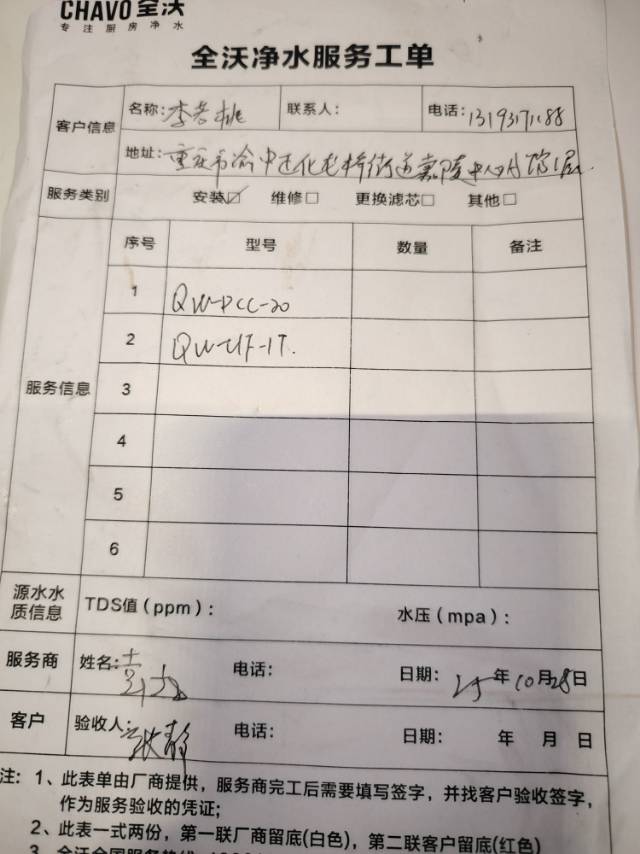 CHAVO 全沃
专注厨房净水
全沃净水服务工单
客户信息
名称: 李若桃 联系人: 电话: 13193171188
地址: 重庆市渝中区化龙桥街道嘉陵中心 1层
服务类别 安装☑ 维修□ 更换滤芯□ 其他□
服务信息
序号 型号 数量 备注
1 QW-PCC-20
2 QW-UF-1T.
3
4
5
6
源水水质信息 TDS值(ppm): 水压(mpa):
服务商 姓名: 电话: 日期: 25年10月28日
客户 验收人: 张静 电话: 日期: 年 月 日
注: 1、此表单由厂商提供,服务商完工后需要填写签字,并找客户验收签字,
作为服务验收的凭证;
2、此表一式两份,第一联厂商留底(白色),第二联客户留底(红色)
3、全沃全国服务热线